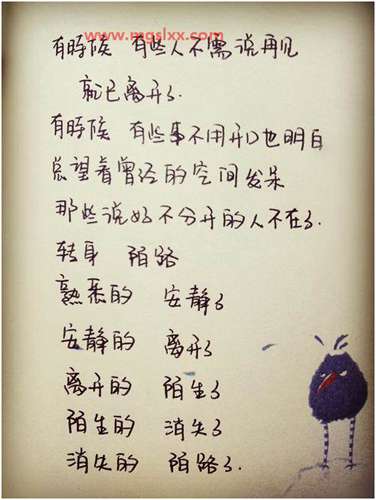 www.mgslxx.com
有時候 有些人不需说再见
就已离开了.
有時候 有些事不用开口也明白
总望着曾经的空间发呆
那些说好不分开的人不在了.
转身 陌路
熟悉的 安静了
安静的 离开了
离开的 陌生了
陌生的 消失了
消失的 陌路了.